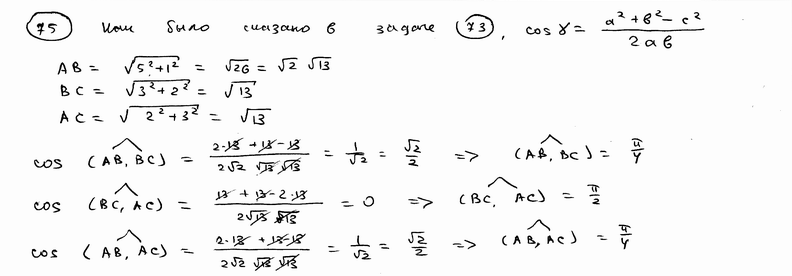 75 Как было сказано в задаче 73, cos γ = (a² + b² - c²) / (2ab)
AB = √(5² + 1²) = √26 = √2 √13
BC = √(3² + 2²) = √13
AC = √(2² + 3²) = √13
cos (AB, BC) = (2·13 + 13 - 13) / (2√2 √13 √13) = 1/√2 = √2/2 => (AB, BC) = π/4
cos (BC, AC) = (13 + 13 - 2·13) / (2√13 √13) = 0 => (BC, AC) = π/2
cos (AB, AC) = (2·13 + 13 - 13) / (2√2 √13 √13) = 1/√2 = √2/2 => (AB, AC) = π/4